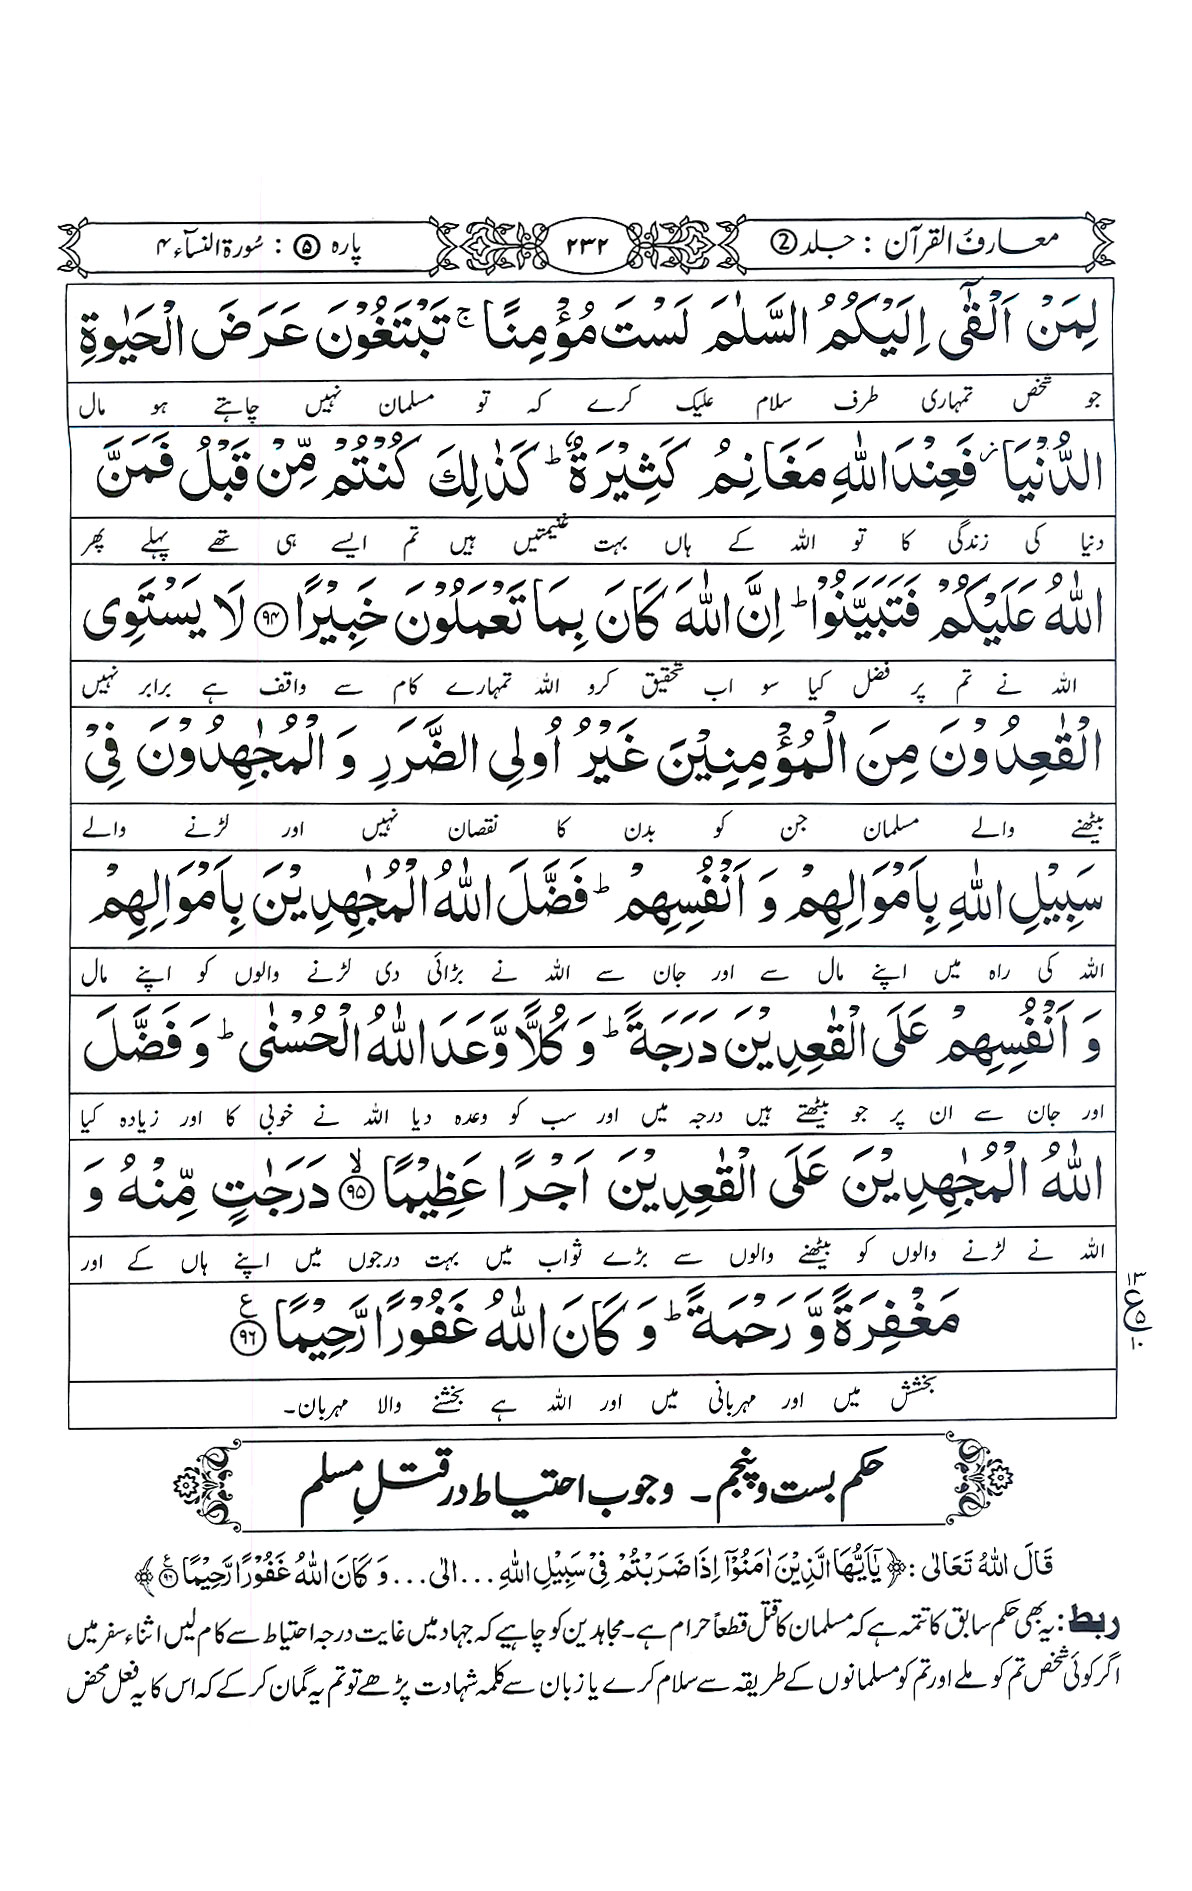 معارف القرآن : جلد ②
۲۳۲
پارہ ⑤ : سُورۃ النسآء ۴
لِمَنْ اَلْقٰۤى اِلَیْكُمُ السَّلٰمَ لَسْتَ مُؤْمِنًا ۚ تَبْتَغُوْنَ عَرَضَ الْحَیٰوةِ
جو شخص تمہاری طرف سلام علیک کرے کہ تو مسلمان نہیں چاہتے ہو مال
الدُّنْیَا ؗ فَعِنْدَ اللّٰهِ مَغَانِمُ كَثِیْرَةٌ ؕ كَذٰلِكَ كُنْتُمْ مِّنْ قَبْلُ فَمَنَّ
دنیا کی زندگی کا تو اللہ کے ہاں بہت غنیمتیں ہیں تم ایسے ہی تھے پہلے پھر
اللّٰهُ عَلَیْكُمْ فَتَبَیَّنُوْا ؕ اِنَّ اللّٰهَ كَانَ بِمَا تَعْمَلُوْنَ خَبِیْرًا ﴿۹۴﴾ لَا یَسْتَوِی
اللہ نے تم پر فضل کیا سو اب تحقیق کرو اللہ تمہارے کام سے واقف ہے برابر نہیں
الْقٰعِدُوْنَ مِنَ الْمُؤْمِنِیْنَ غَیْرُ اُولِی الضَّرَرِ وَ الْمُجٰهِدُوْنَ فِیْ
بیٹھنے والے مسلمان جن کو بدن کا نقصان نہیں اور لڑنے والے
سَبِیْلِ اللّٰهِ بِاَمْوَالِهِمْ وَ اَنْفُسِهِمْ ؕ فَضَّلَ اللّٰهُ الْمُجٰهِدِیْنَ بِاَمْوَالِهِمْ
اللہ کی راہ میں اپنے مال سے اور جان سے اللہ نے بڑائی دی لڑنے والوں کو اپنے مال
وَ اَنْفُسِهِمْ عَلَی الْقٰعِدِیْنَ دَرَجَةً ؕ وَ كُلًّا وَّعَدَ اللّٰهُ الْحُسْنٰی ؕ وَ فَضَّلَ
اور جان سے ان پر جو بیٹھتے ہیں درجہ میں اور سب کو وعدہ دیا اللہ نے خوبی کا اور زیادہ کیا
اللّٰهُ الْمُجٰهِدِیْنَ عَلَی الْقٰعِدِیْنَ اَجْرًا عَظِیْمًا ۙ﴿۹۵﴾ دَرَجٰتٍ مِّنْهُ وَ
اللہ نے لڑنے والوں کو بیٹھنے والوں سے بڑے ثواب میں بہت درجوں میں اپنے ہاں کے اور
مَغْفِرَةً وَّ رَحْمَةً ؕ وَ كَانَ اللّٰهُ غَفُوْرًا رَّحِیْمًا ﴿۹۶﴾ ع
۱۳
ع ۵
۱۰
بخشش میں اور مہربانی میں اور اللہ ہے بخشنے والا مہربان۔
حکم بست و پنجم ۔ وجوب احتیاط در قتلِ مسلم
قَالَ اللّٰهُ تَعَالٰی : ﴿یٰۤاَیُّهَا الَّذِیْنَ اٰمَنُوْۤا اِذَا ضَرَبْتُمْ فِیْ سَبِیْلِ اللّٰهِ ... الی ... وَ كَانَ اللّٰهُ غَفُوْرًا رَّحِیْمًا ۹۶ ع﴾
ربط : یہ بھی حکم سابق کا تتمہ ہے کہ مسلمان کا قتل قطعاً حرام ہے۔ مجاہدین کو چاہیے کہ جہاد میں غایت درجہ احتیاط سے کام لیں اثناء سفر میں
اگر کوئی شخص تم کو ملے اور تم کو مسلمانوں کے طریقہ سے سلام کرے یا زبان سے کلمہ شہادت پڑھے تو تم یہ گمان کر کے کہ اس کا یہ فعل محض